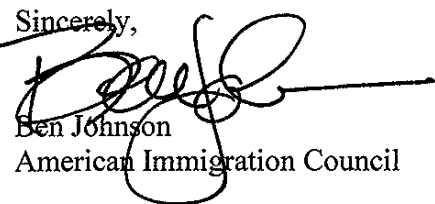 Sincerely,
Ben Johnson
American Immigration Council